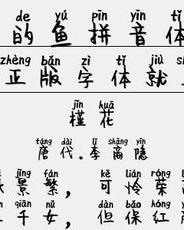 de yú pīn yīn tǐ
的鱼拼音体
zhèng bǎn zì tǐ jiù
正版字体就
jǐn huā
槿花
táng dài . lǐ shāng yǐn
唐代.李商隐
jǐng fán kě lián róng
景繁，可怜荣
qiān nǚ dàn bǎo hóng
千女，但保红